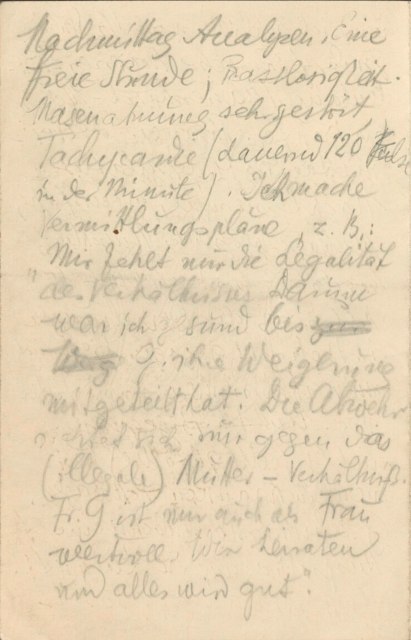 Nachmittag Analysen. Eine
freie Stunde; Rastlosigkeit.
Nasenatmung sehr gestört,
Tachycardie (dauernd 120 Pulse
in der Minute). Ich mache
Vermittlungspläne, z. B.:
Mir fehlt nur die Legalität
"des Verhältnisses. Darum
war ich gesund bis
G. ihre Weigerung
mitgeteilt hat. Die Abwehr
richtet sich nur gegen das
(illegale) Mutter-Verhältniß.
Fr. G ist mir auch als Frau
wertvoll. Wir heiraten
und alles wird gut".